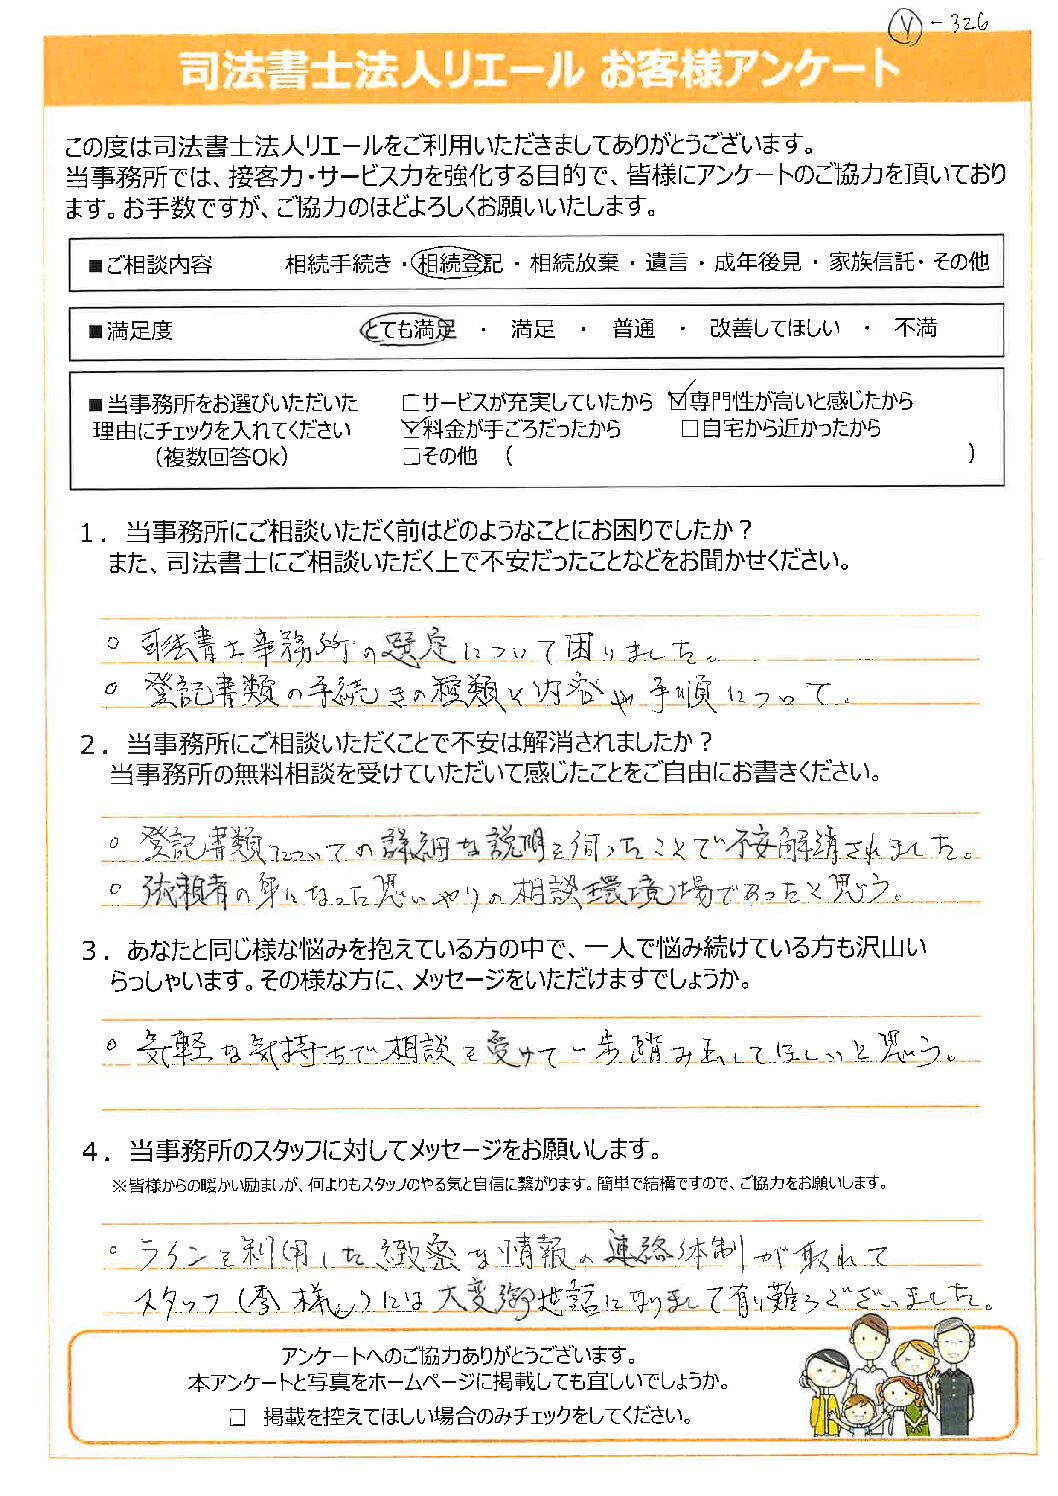 Ⓨ-326
司法書士法人リエール お客様アンケート
この度は司法書士法人リエールをご利用いただきましてありがとうございます。
当事務所では、接客力・サービス力を強化する目的で、皆様にアンケートのご協力を頂いており
ます。お手数ですが、ご協力のほどよろしくお願いいたします。
■ご相談内容 相続手続き・相続登記・相続放棄・遺言・成年後見・家族信託・その他
■満足度 とても満足・満足・普通・改善してほしい・不満
■当事務所をお選びいただいた □サービスが充実していたから ☑専門性が高いと感じたから
理由にチェックを入れてください ☑料金が手ごろだったから □自宅から近かったから
(複数回答Ok) □その他 ( )
1．当事務所にご相談いただく前はどのようなことにお困りでしたか？
また、司法書士にご相談いただく上で不安だったことなどをお聞かせください。
○ 司法書士事務所の選定について困りました。
○ 登記書類の手続きの種類と内容や手順について。
2．当事務所にご相談いただくことで不安は解消されましたか？
当事務所の無料相談を受けていただいて感じたことをご自由にお書きください。
○ 登記書類についての詳細な説明を伺ったことで不安解消されました。
○ 依頼者の身になった思いやりの相談環境場であったと思う。
3．あなたと同じ様な悩みを抱えている方の中で、一人で悩み続けている方も沢山い
らっしゃいます。その様な方に、メッセージをいただけますでしょうか。
○ 気軽な気持ちで相談を受けて一歩踏み出してほしいと思う。
4．当事務所のスタッフに対してメッセージをお願いします。
※皆様からの暖かい励ましが、何よりもスタッフのやる気と自信に繋がります。簡単で結構ですので、ご協力をお願いします。
○ ラインを利用した緻密な情報の連絡体制が取れて
スタッフ( 様)には大変御世話になりまして有り難うございました。
アンケートへのご協力ありがとうございます。
本アンケートと写真をホームページに掲載しても宜しいでしょうか。
□ 掲載を控えてほしい場合のみチェックをしてください。